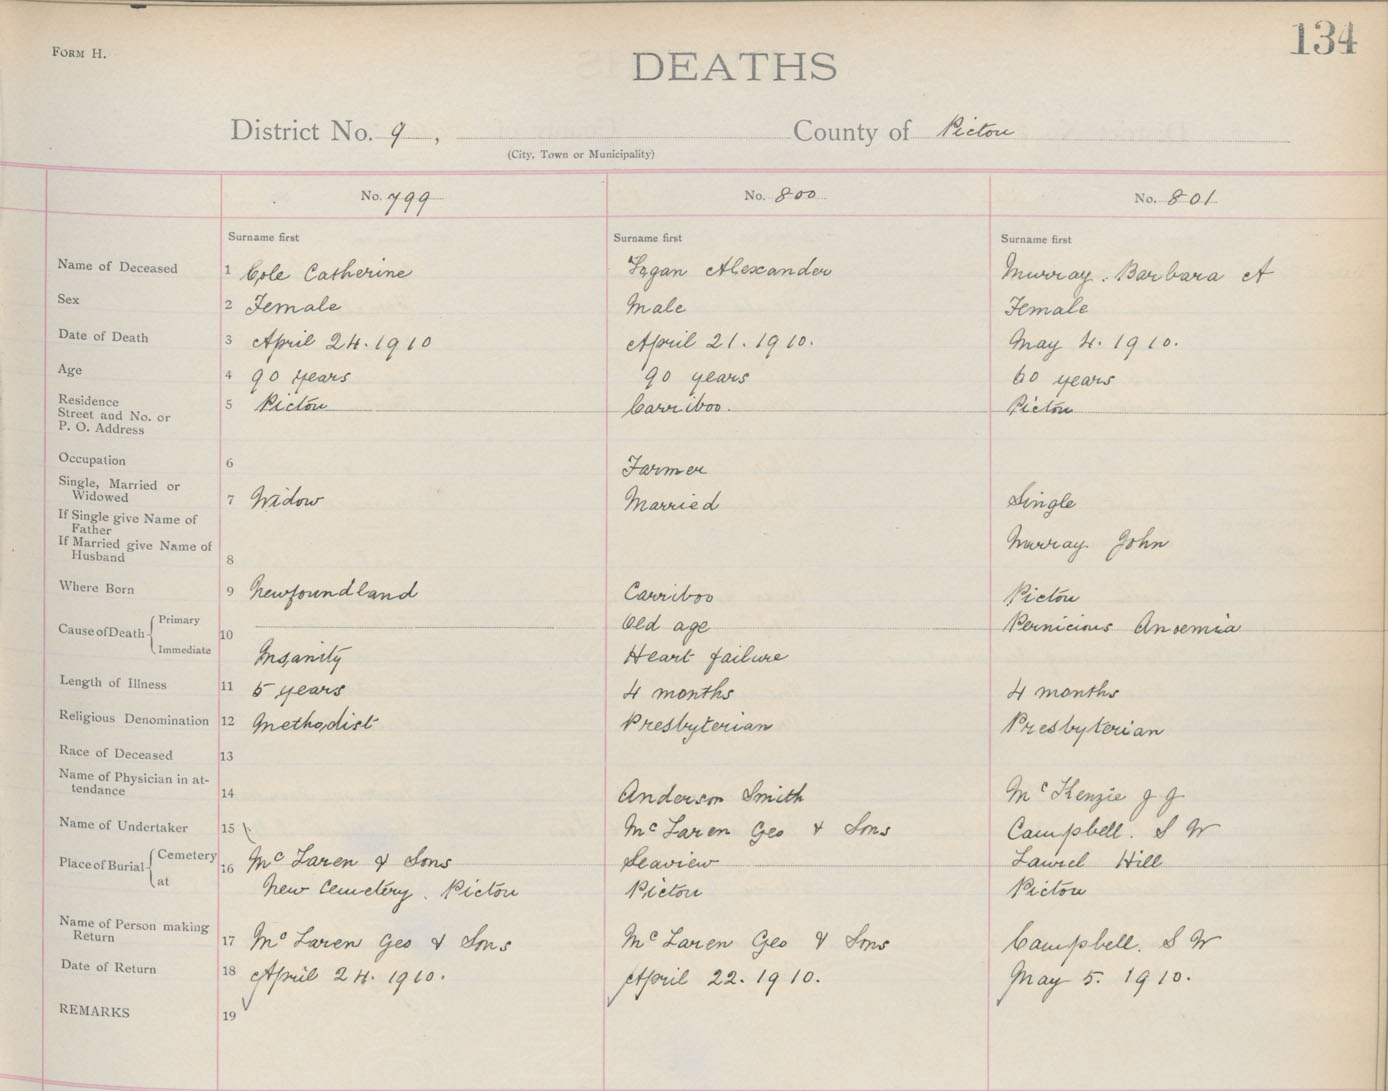 134
FORM H.
DEATHS
District No. 9, County of Pictou
(City, Town or Municipality)
No. 799 No. 800 No. 801
Surname first Surname first Surname first
Name of Deceased 1 Cole Catherine Logan Alexander Murray. Barbara A
Sex 2 Female Male Female
Date of Death 3 April 24. 1910 April 21. 1910. May 4. 1910.
Age 4 90 years 90 years 60 years
Residence
Street and No. or
P. O. Address 5 Pictou Carriboo. Pictou
Occupation 6 Farmer
Single, Married or
Widowed 7 Widow Married Single
If Single give Name of
Father
If Married give Name of
Husband 8 Murray John
Where Born 9 Newfoundland Carriboo Pictou
Cause of Death 10 Primary Old age Pernicious Anoemia
Immediate Insanity Heart failure
Length of Illness 11 5 years 4 months 4 months
Religious Denomination 12 Methodist Presbyterian Presbyterian
Race of Deceased 13
Name of Physician in at-
tendance 14 Anderson Smith McKenzie J J
Name of Undertaker 15 McLaren Geo & Sons Campbell. S W
Place of Burial 16 Cemetery McLaren & Sons Seaview Laurel Hill
at New Cemetery. Pictou Pictou Pictou
Name of Person making
Return 17 McLaren Geo & Sons McLaren Geo & Sons Campbell. S W
Date of Return 18 April 24. 1910. April 22. 1910. May 5. 1910.
REMARKS 19